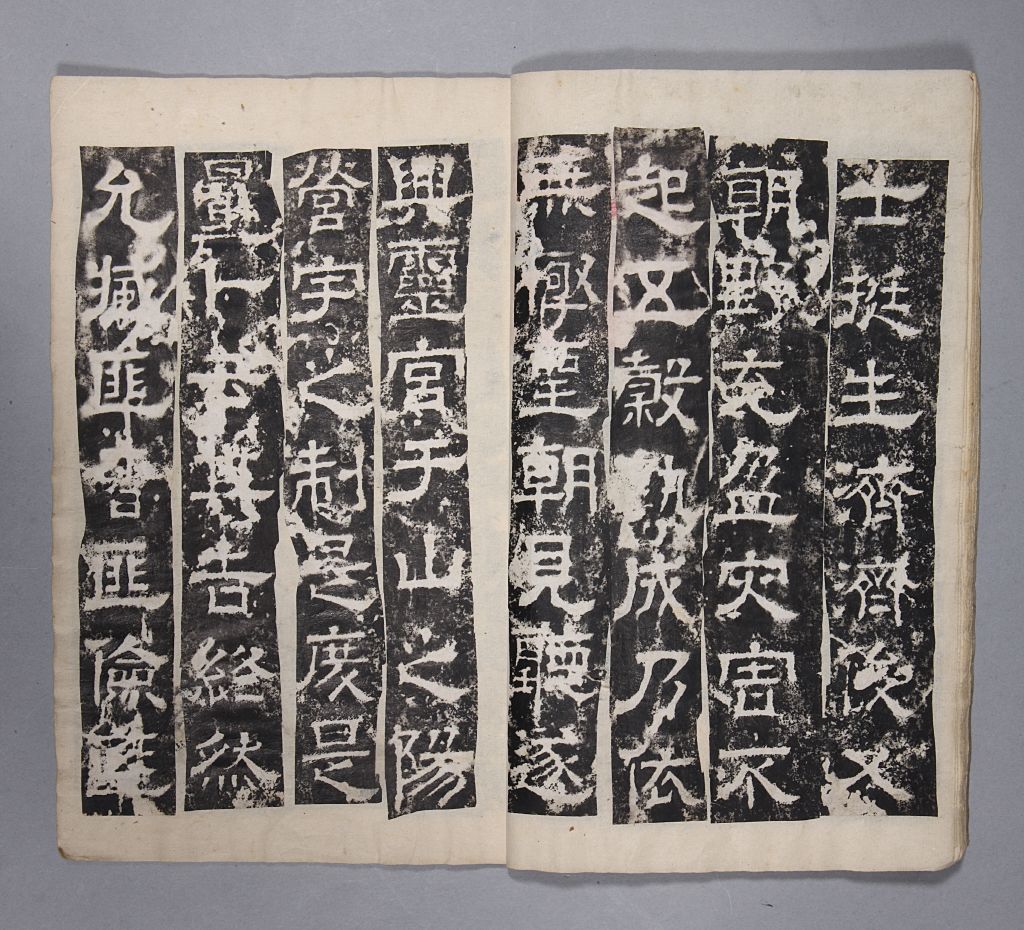 士挺生濟濟俊乂
朝野充盈灾害不
起五穀熟成乃依
無極聖朝見聽遂
興靈宮于山之陽
營宇之制是度是
量卜云其吉終然
允臧匪奢匪儉率